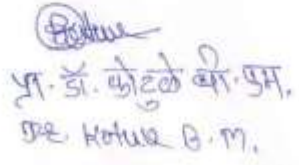 प्रा. डॉ. कोटुळे बी. एम.
Dr. Kotule B. M.